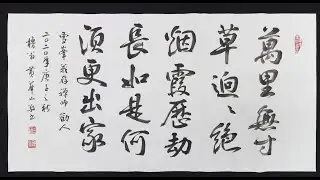 萬里無寸
草迥〻絕
烟霞歷劫
長如是何
須更出家
雪峯義存禪師
二〇二〇年庚子之秋